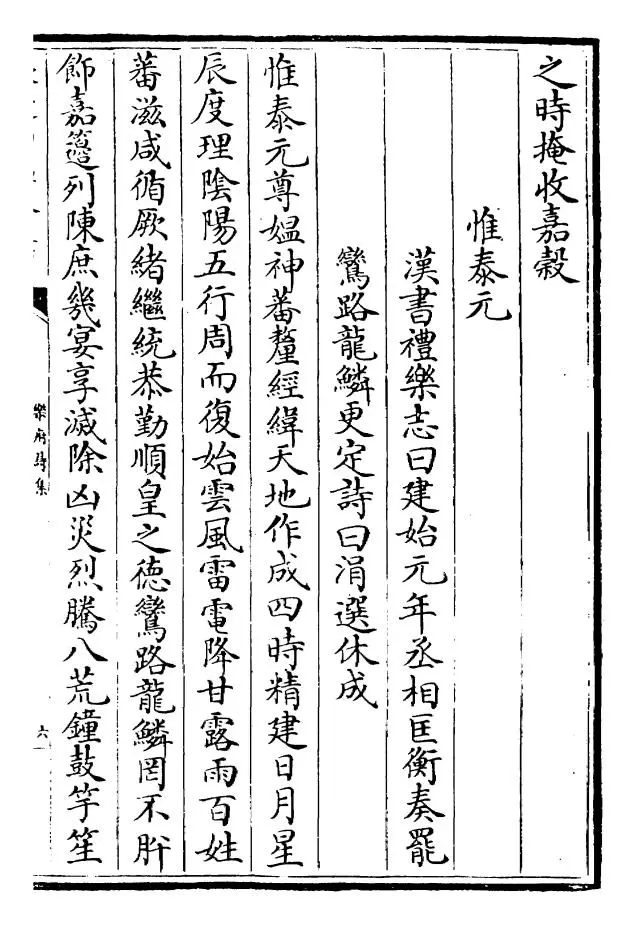 之時掩收嘉穀
惟泰元
漢書禮樂志曰建始元年丞相匡衡奏罷
鸞路龍鱗更定詩曰涓選休成
惟泰元尊媪神蕃釐經緯天地作成四時精建日月星
辰度理陰陽五行周而復始雲風雷電降甘露雨百姓
蕃滋咸循厥緒繼統恭勤順皇之德鸞路龍鱗罔不肸
飾嘉籩列陳庶幾宴享滅除凶災烈騰八荒鐘鼓竽笙
樂府詩集
六